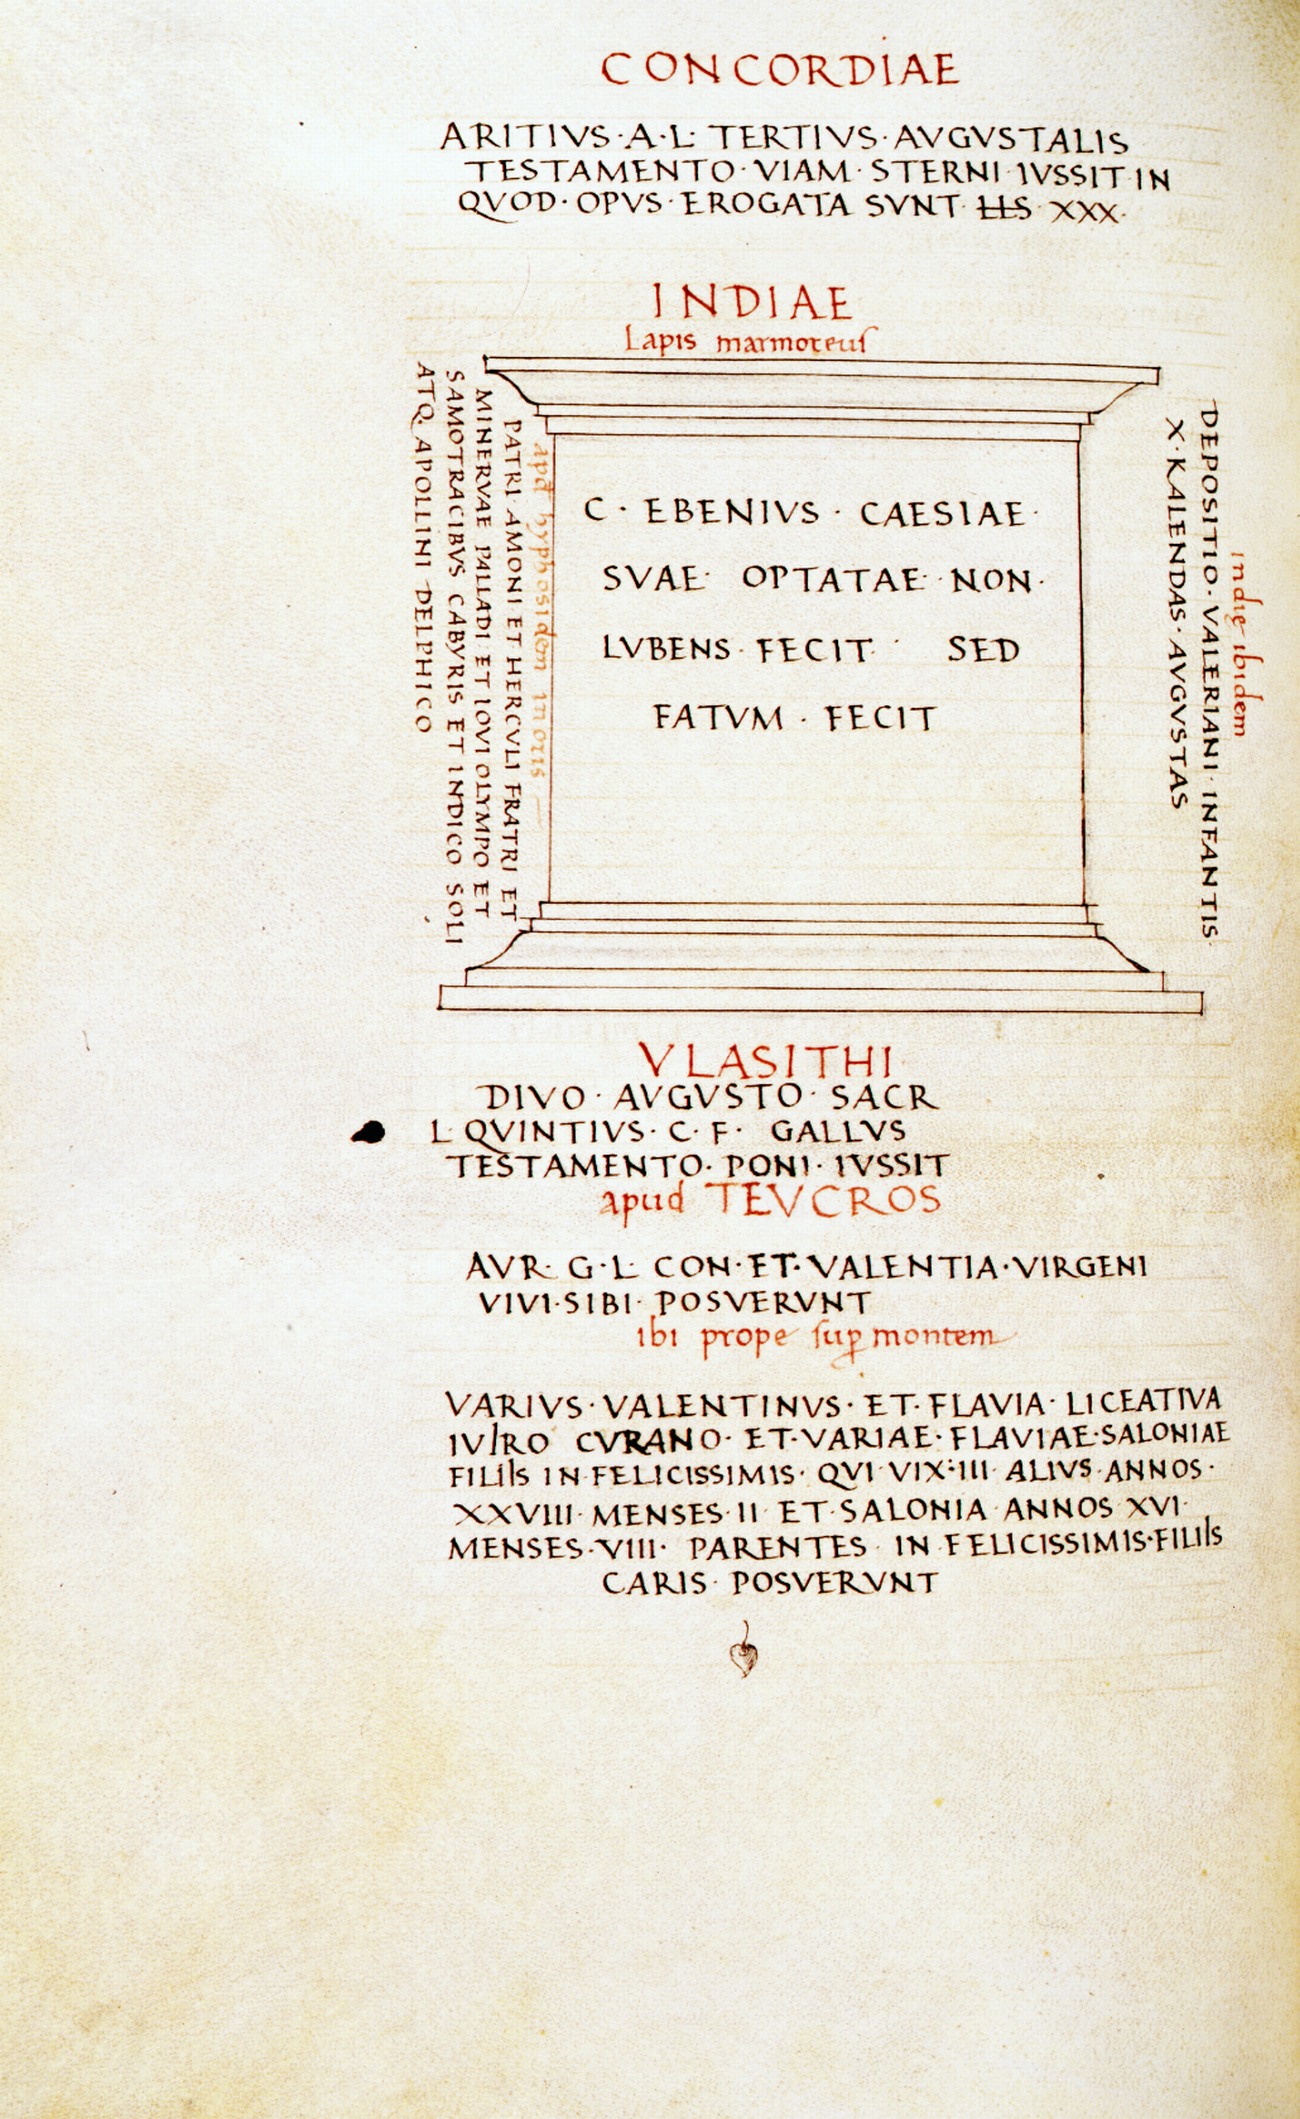 CONCORDIAE
ARITIVS·A·L· TERTIVS·AVGVSTALIS
TESTAMENTO·VIAM·STERNI·IVSSIT·IN
QVOD·OPVS·EROGATA SVNT HS XXX·
INDIAE
Lapis marmoreus
apd hyphosidem in oris
PATRI·AMONI ET HERCVLI FRATRI ET
MINERVAE PALLADI ET IOVI OLYMPO ET
SAMOTRACIBVS CABYRIS ET INDICO SOLI
ATQ. APOLLINI DELPHICO
C · EBENIVS · CAESIAE·
SVAE· OPTATAE·NON·
LVBENS·FECIT· SED
FATVM · FECIT
indię ibidem
DEPOSITIO·VALERIANI·INFANTIS·
X·KALENDAS·AVGVSTAS
VLASITHI
DIVO·AVGVSTO·SACR
L·QVINTIVS·C·F· GALLVS
TESTAMENTO·PONI·IVSSIT
apud TEVCROS
AVR·G·L·CON·ET·VALENTIA·VIRGENI
VIVI·SIBI·POSVERVNT
ibi prope sup̱ montem
VARIVS·VALENTINVS·ET·FLAVIA·LICEATIVA
CVRANO·ET·VARIAE·FLAVIAE·SALONIAE
FILIIs IN·FELICISSIMIS·QVI·VIX·III·ALIVS·ANNOS·
XXVIII·MENSES·II·ET·SALONIA·ANNOS XVI·
MENSES·VIII·PARENTES·IN·FELICISSIMIS·FILIIs
CARIS·POSVERVNT